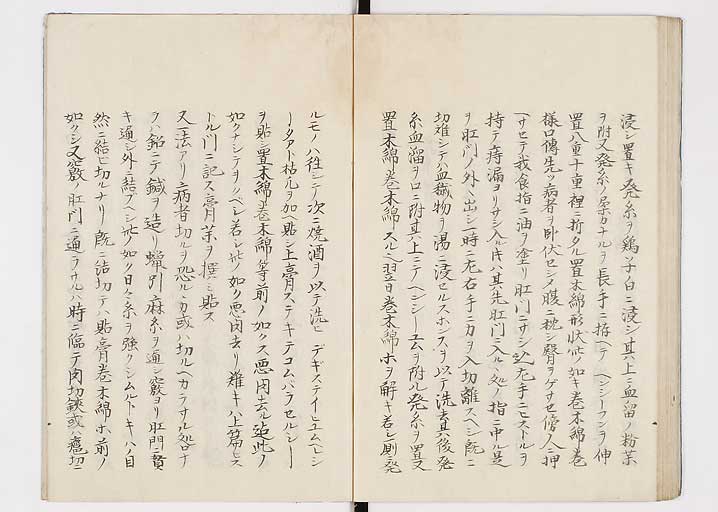 浸シ置キ発糸ヲ鶏子白ニ浸シ其上ニ血溜ノ粉茶
ヲ附又発糸ノ柔カナルヲ長手ニ揃ヘテヘンシーフンヲ伸
置八重十重裡ニ折タル置木綿形状此ノ如キ巻木綿巻
様口傳先ツ病者ヲ卧伏セシメ腹ニ枕シ臀ヲゲサセ傍人ニ押
ヘサセテ我食指ニ油ヲ塗リ肛門ニサシ込左手ニヒストルヲ
持テ痔漏ヨリサシ入ル其先肛門ニ入ル処ノ指ニ中ル是
ヲ肛門ノ外ヘ出シ一時ニ左右手ニ力ヲ入切離スヘシ既ニ
切離シテハ血穢物ヲ湯ニ浸セルスホンスヲ以テ洗去其後発
糸血溜ヲ口ニ附其上ニテヘンシーユムヲ附ル発糸ヲ置又
置木綿巻木綿スル也翌日巻木綿ホヲ解キ若シ厠ニ発
ルモノハ徃シテノ次ニ焼酒ヲ以テ洗ヒデギステイーユムヘシ
ータアト枯凡ヲ加ヘ貼シ上膏ステキテコムバラセルシー
ヲ貼シ置木綿巻木綿等前ノ如クス悪肉去ル迠此ノ
如クナシテヨリノベシ若シ此ノ如ク悪肉去リ難キハ上篇ヒス
トル門ニ記ス膏茶ヲ撰ミ貼ス
又一法アリ病者切ルヲ恐ルヽカ或ハ切ルヘカラサル処ロナ
ラハ鉛ニテ鍼ヲ造リ蝋引麻糸ヲ通シ竅ヨリ肛門ニ貫
キ通シ外ニ結フヘシ此ノ如ク日々ニ糸ヲ強クシムルトキハノ自
然ニ結ヒ切ルナリ既ニ結切テハ貼膏巻木綿ホ前ノ
如クシ又竅ノ肛門ニ通ラサルハ時ニ臨テ肉切鋏或ハ癰切ニ